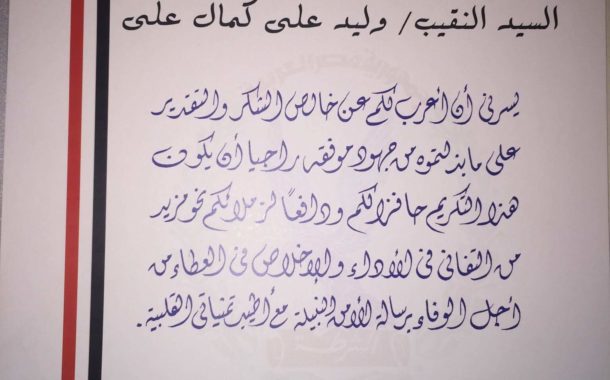 السيد النقيب/ وليد على كمال على
يسرنى أن أعرب لكم عن خالص الشكر والتقدير
على ما بذلتموه من جهود موفقه راجيا أن يكون
هذا التكريم حافزا لكم ودافعًا لزملائكم نحو مزيد
من التفانى فى الأداء والإخلاص فى العطاء من
أجل الوفاء برسالة الأمن النبيلة مع أطيب تمنياتى القلبية .